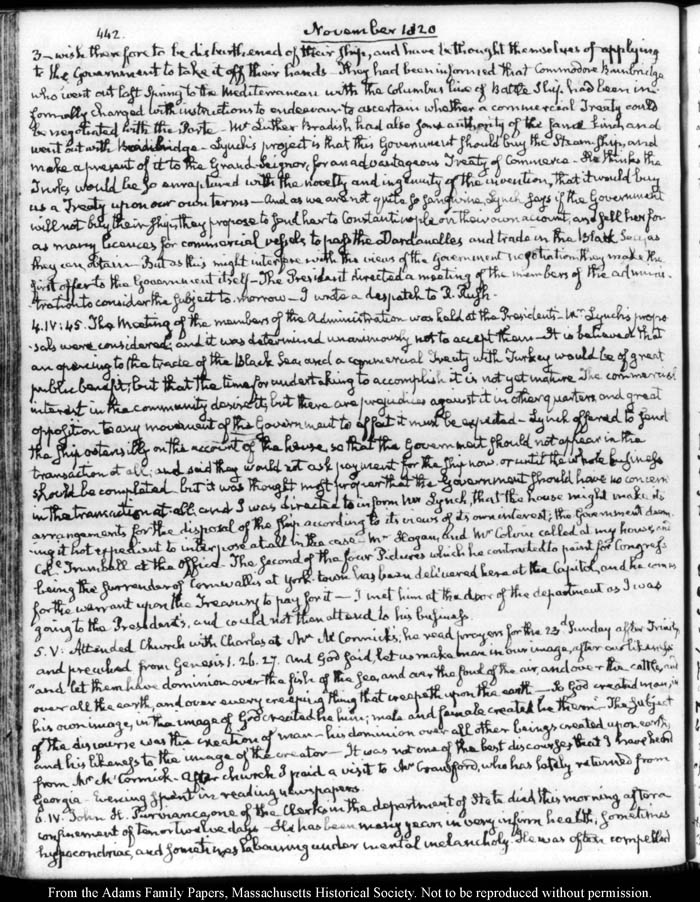 442.
November 1820
3 - wish therefore to be disburthened of their ship, and have bethought themselves of applying
to the Government to take it off their hands - They had been informed that Commodore Bainbridge
who went out last Spring to the Mediterranean with the Columbus line of Battle Ship had been in-
formally charged with instructions to endeavour to ascertain whether a commercial Treaty could
be negotiated with the Porte - Mr Luther Bradish had also some authority of the same kind, and
went out with Bainbridge - Lynch's project is that this Government should buy the Steam Ship, and
make a present of it to the Grand Seignor, for an advantageous Treaty of Commerce - He thinks the
Turks would be so enraptured with the novelty and ingenuity of the invention, that it would buy
us a Treaty upon our own terms - And as we are not quite so sanguine, Lynch says if the Government
will not buy their Ship, they propose to send her to Constantinople on their own account, and sell her for
as many licences for commercial vessels to pass the Dardanelles and trade in the Black Sea, as
they can obtain - But as this might interfere with the views of the Government negotiation, they make the
first offer to the Government itself - The President directed a meeting of the members of the adminis-
-tration to consider the subject to-morrow - I wrote a despatch to R. Rush.
4. IV: 45. The Meeting of the members of the Administration was held at the President's. Mr Lynch's propo-
-sals were considered, and it was determined unanimously not to accept them - It is believed that
an opening to the trade of the Black Sea, and a commercial Treaty with Turkey would be of great
public benefit; but that the time for undertaking to accomplish it is not yet mature. The commercial
interest in the community desire it, but there are prejudices against it in other quarters, and great
opposition to any movement of the Government to effect it must be expected - Lynch offered to send
the ship ostensibly on the account of the house, so that the Government should not appear in the
transaction at all; and said they would not ask payment for the ship now, or until the whole business
should be completed - but it was thought most proper that the Government should have no concern
in the transaction at all; and I was directed to inform Mr Lynch, that the house might make its
arrangements for the disposal of the ship according to its views of its own interest; the Government deem-
ing it not expedient to interpose at all in the case - Mr Hogan, and Mr Colvin called at my house, and
Col. Trumbull at the Office - The second of the four Pictures which he contracted to paint for Congress
being the surrender of Cornwallis at York-town has been delivered here at the Capitol, and he comes
for the warrant upon the Treasury to pay for it - I met him at the door of the department as I was
going to the President's, and could not then attend to his business.
5. V: Attended Church with Charles at Mr McCormick's, he read prayers for the 23d Sunday after Trinity
and preached from Genesis 1. 26. 27. And God said, let us make man in our image, after our likeness;
"and let them have dominion over the fish of the sea, and over the fowl of the air, and over the cattle, and
over all the earth, and over every creeping thing that creepeth upon the earth - So God created man, in
his own image, in the image of God created he him; male and female created he them - The subject
of the discourse was the creation of man - his dominion over all other beings created upon earth,
and his likeness to the image of the creator - It was not one of the best discourses that I have heard
from Mr McCormick - After church I paid a visit to Mr Crawford, who has lately returned from
Georgia - Evening spent in reading newspapers.
6. IV. John H. Purviance, one of the Clerks in the department of State died this morning after a
confinement of ten or twelve days - He has been many years in very infirm health; sometimes
hypocondriac, and sometimes labouring under mental melancholy. He was often compelled
From the Adams Family Papers, Massachusetts Historical Society. Not to be reproduced without permission.